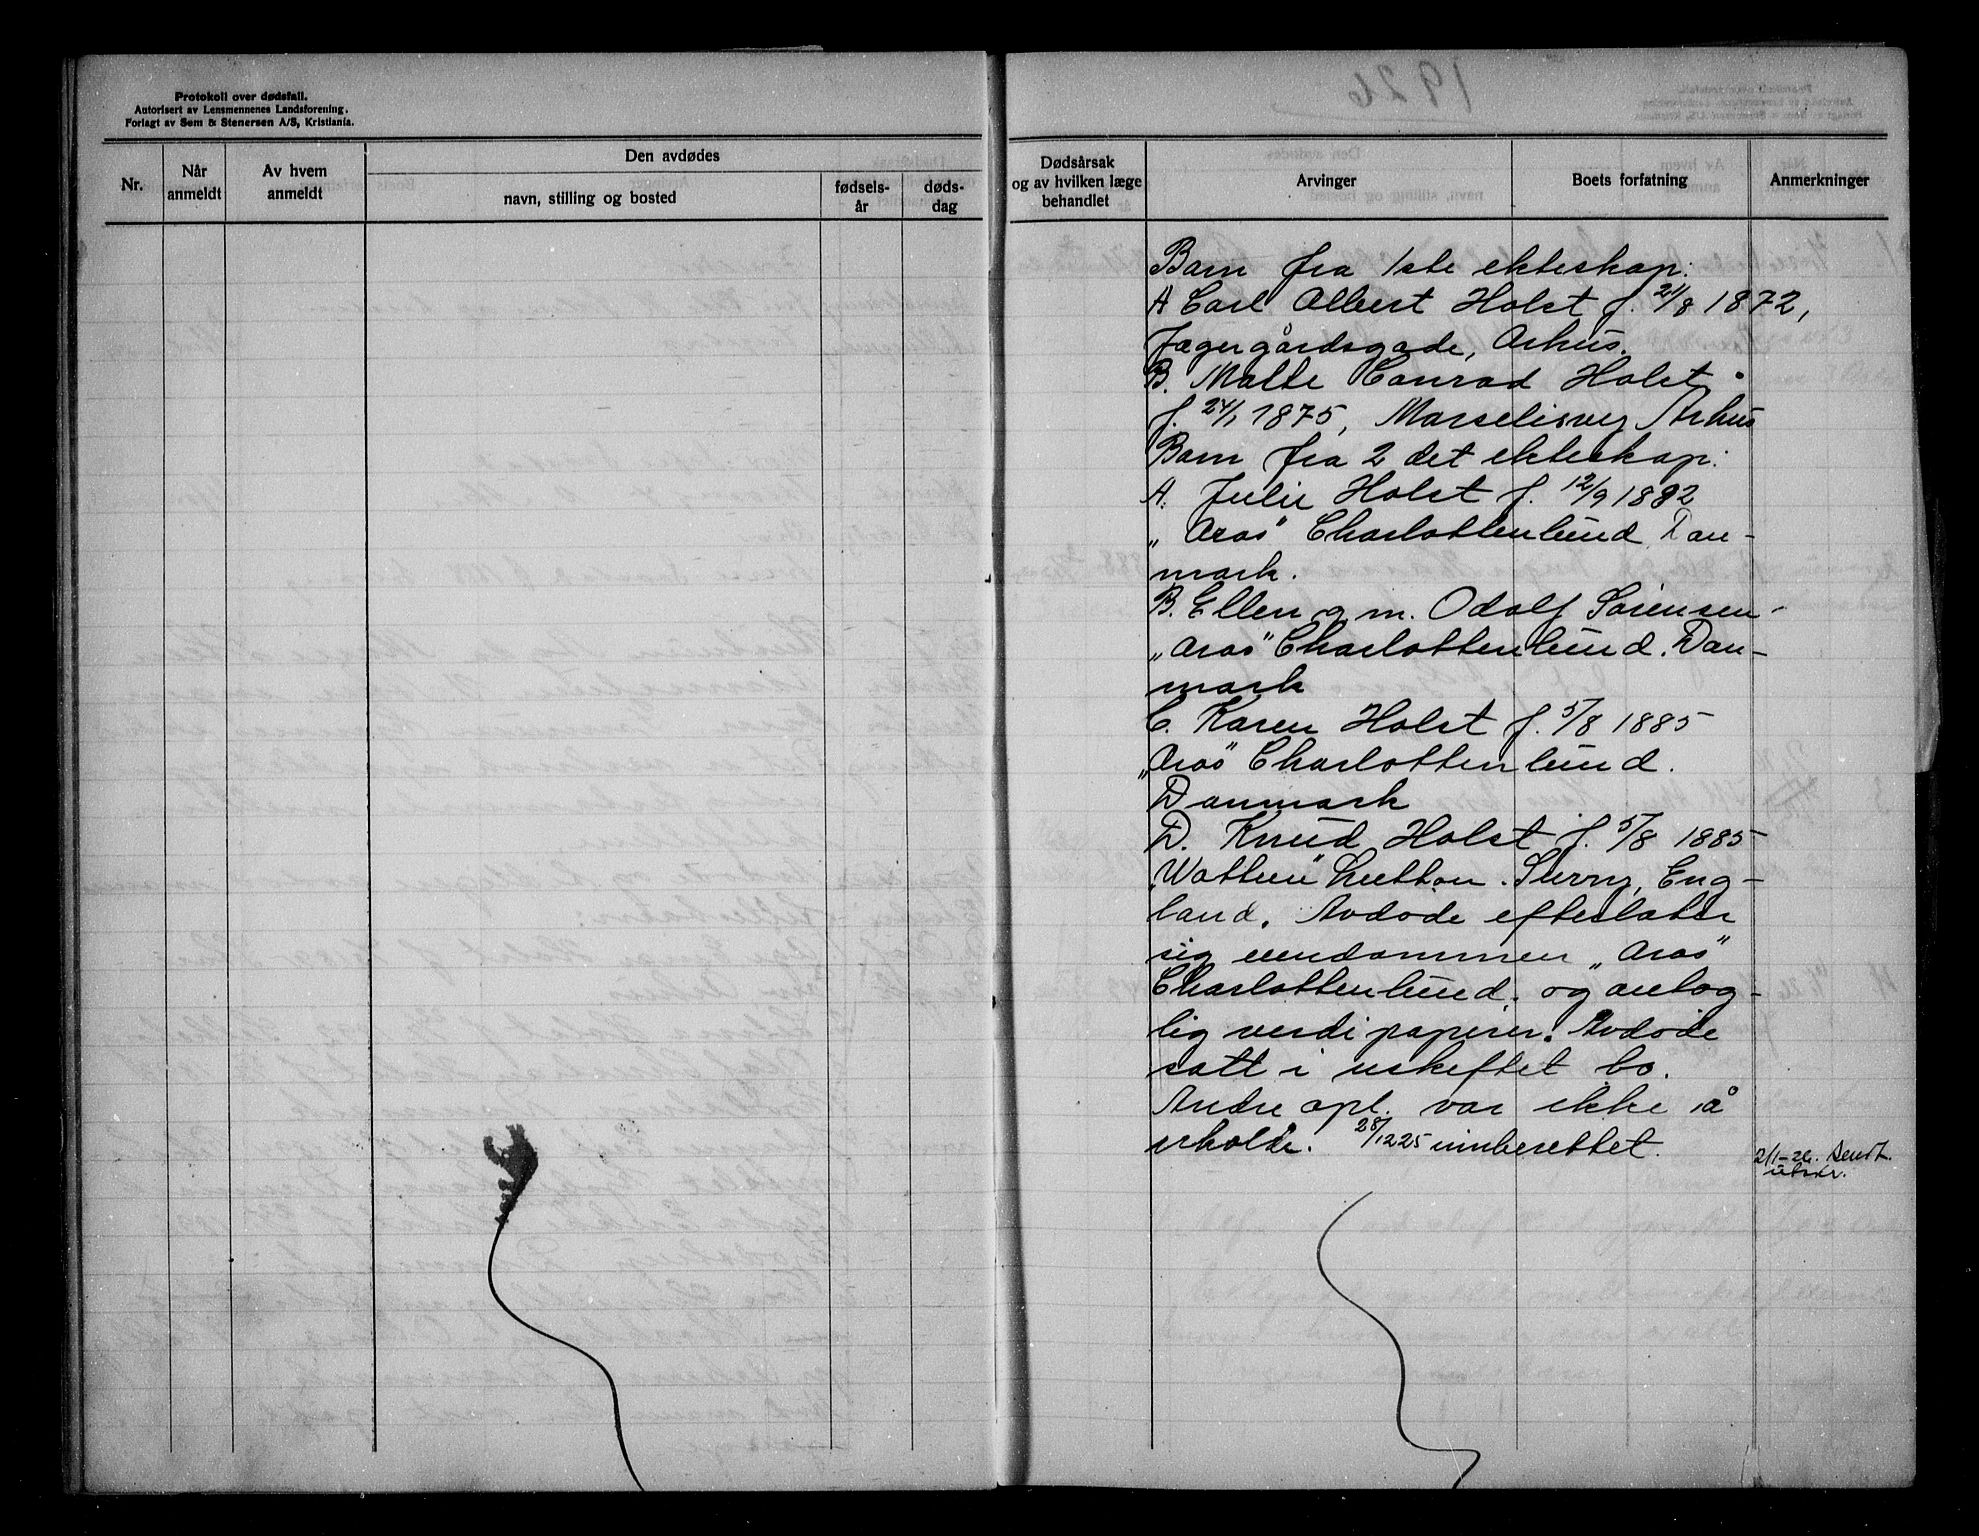 Protokoll over dødsfall.
Autorisert av Lensmennenes Landsforening.
Forlagt av Sem & Stenersen A/S, Kristiania.
Nr.
Når anmeldt
Av hvem anmeldt
Den avdødes
navn, stilling og bosted
fødsels-år
døds-dag
Dødsårsak og av hvilken læge behandlet
Arvinger
Boets forfatning
Anmerkninger
Barn fra 1ste ekteskap:
A Carl Albert Holst f. 21/8 1872,
Jægergårdsgade, Arhus.
B. Malte Conrad Holst
f. 24/1 1875, Marselisvej Arhus
Barn fra 2 det ekteskap:
A. Julie Holst f. 12/9 1882
„Aros" Charlottenlund Dan-
mark.
B. Ellen g. m. Odolf Sörensen
„Aros" Charlottenlund. Dan-
mark
C. Karen Holst f. 5/8 1885
„Aros" Charlottenlund.
Danmark
D. Knud Holst f. 5/8 1885
Sutton. Surry, Eng-
land. Avdöde efterlater
sig eiendommen „Aros"
Charlottenlund. og antag-
lig verdipapirer. Avdöde
satt i uskiftet bo.
Andre opl. var ikke å
erholde. 28/12 25 innberettet.
2/1-26. Sendt
utskr.
1926